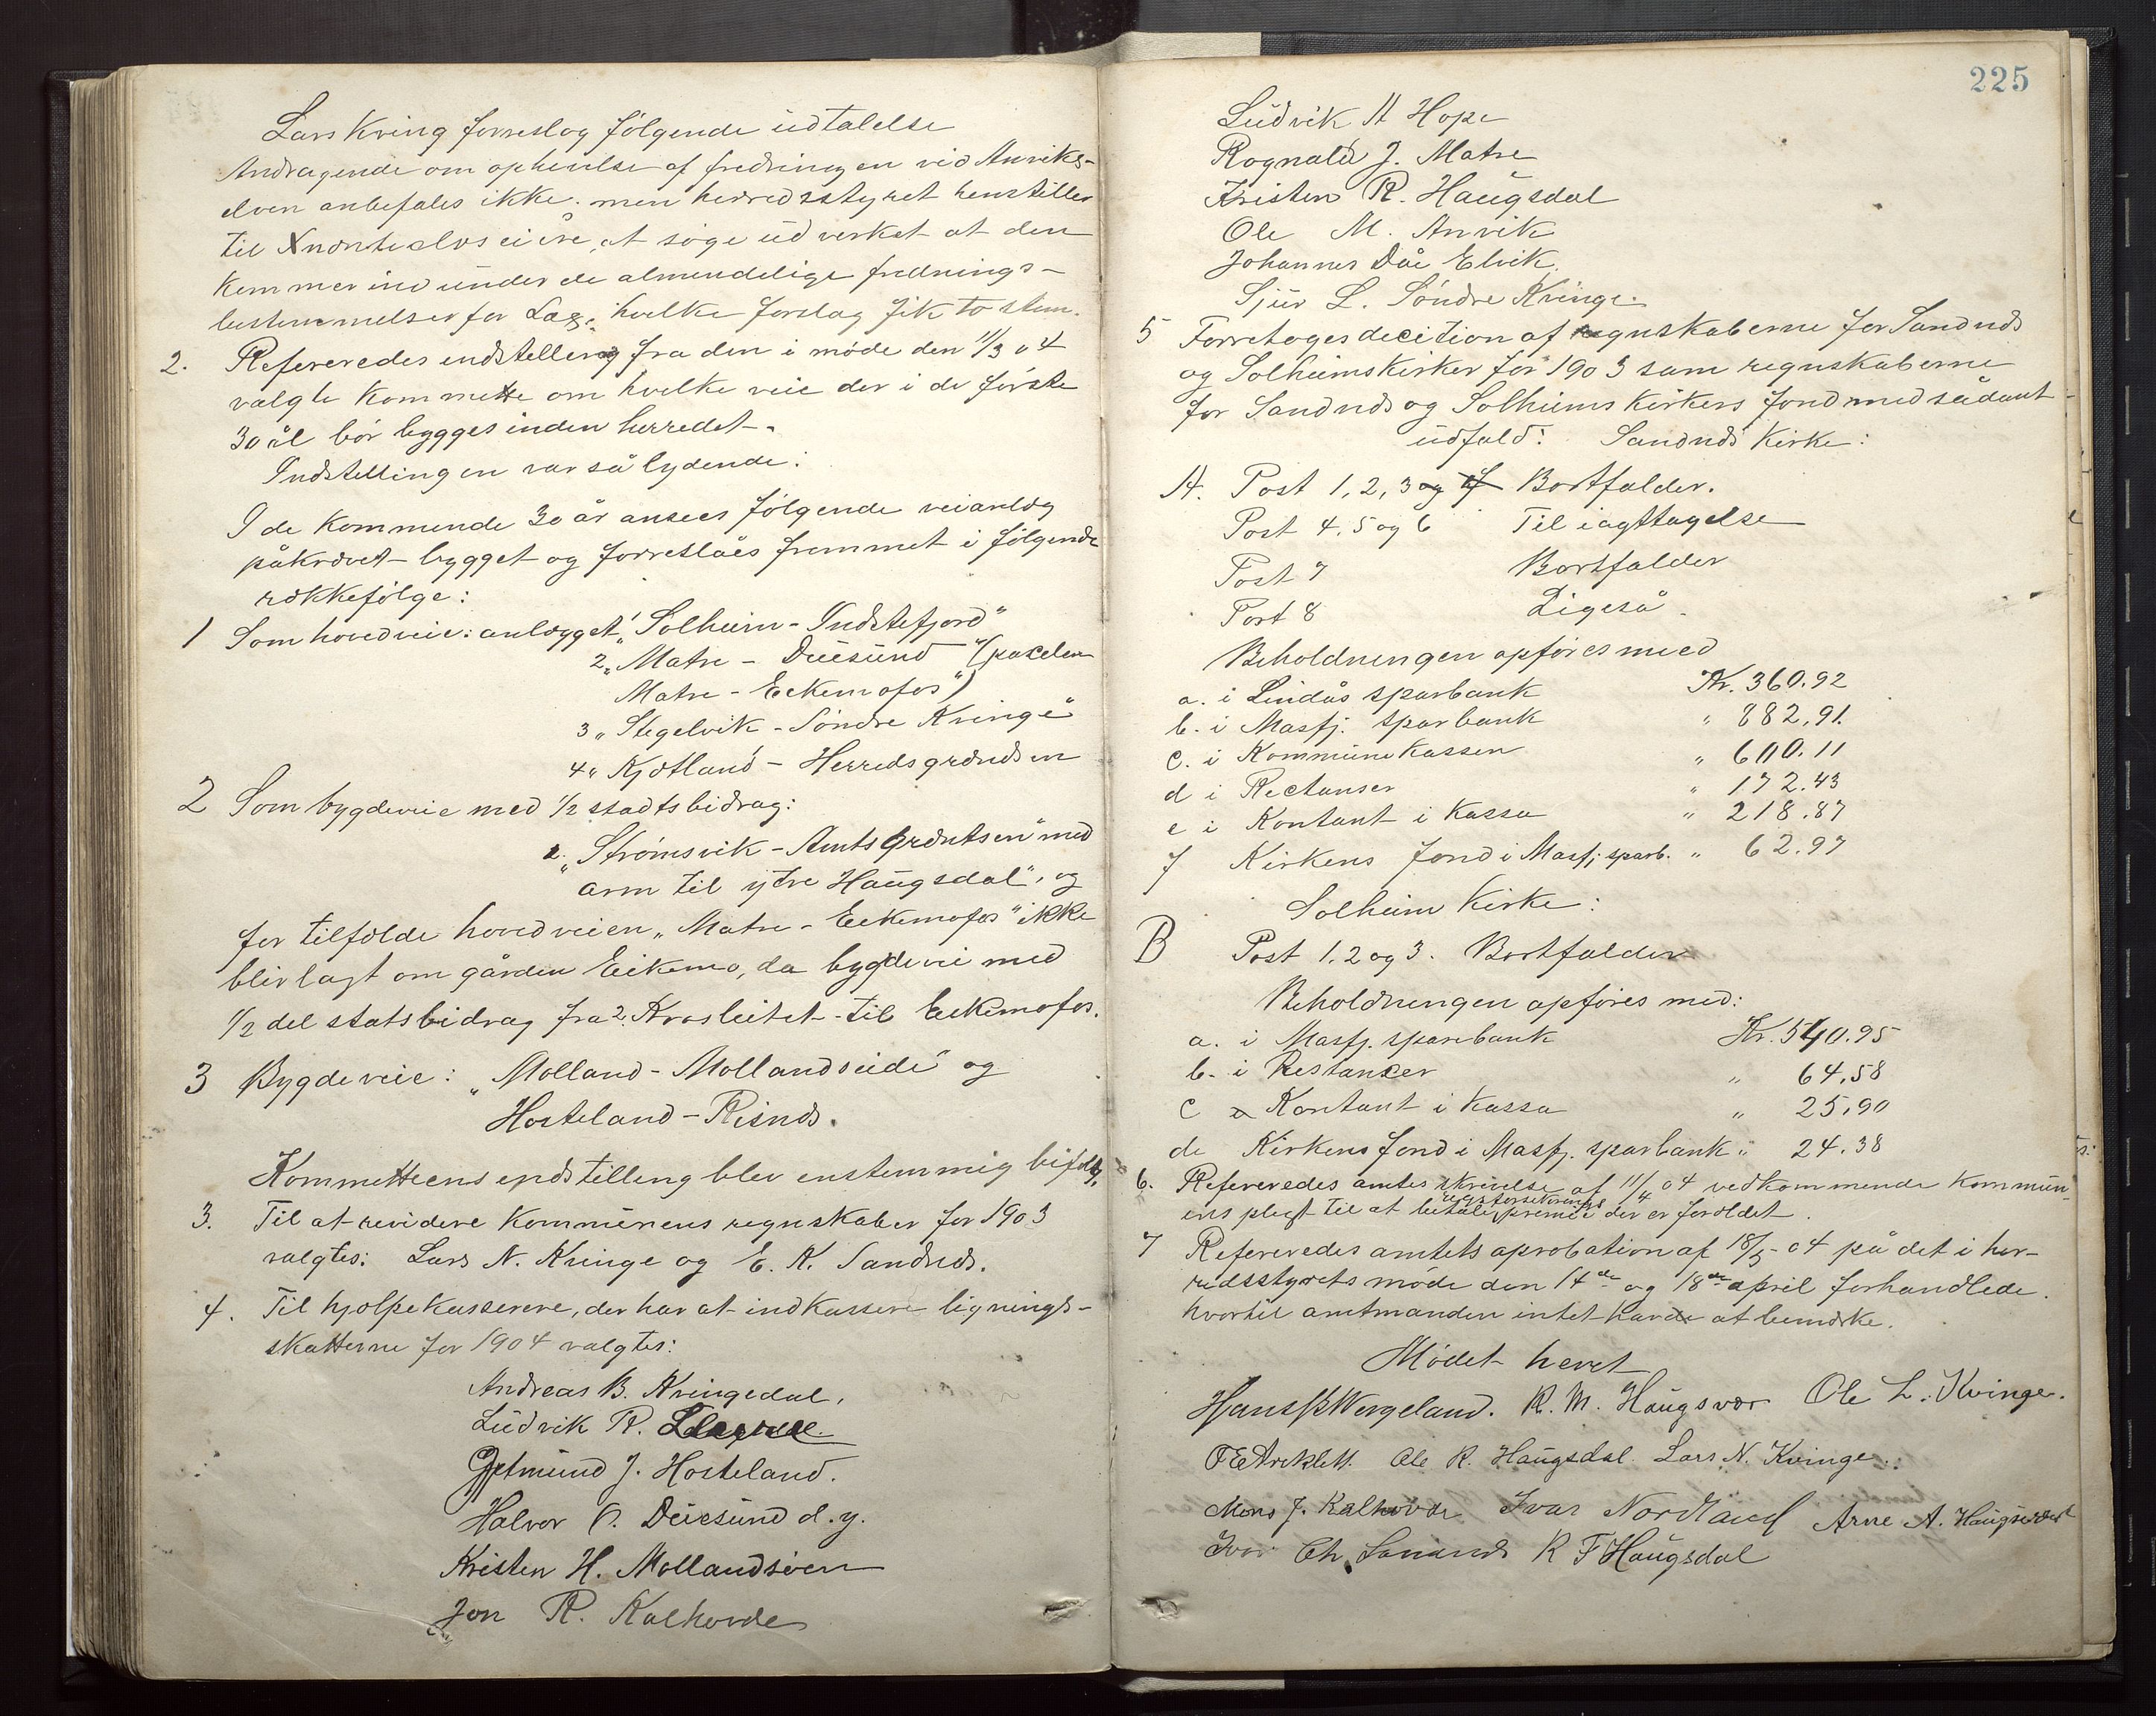 Lars Kving forreslog følgende udtalelse
Andragende om ophevelse af fredningen vid Anviks-
elven anbefales ikke. men herredsstyret henstiller
til at søge udverket at den
kommer ind under de almindelige frednings-
bestemmelser for Lax, hvilke forslag fik to stem.
2. Refereredes indstilling fra den i møde den 11/3 04
valgte Kommette om hvilke veie der i de første
30 år bør bygges inden herredet.
Indstillingen var så lydende:
I de kommende 30 år ansees følgende veianlæg
påkrævet bygget og forreslåes fremmet i følgende
rækkefølge:
1 Som hovedveie: anlægget 1 „Solheim - Indstefjord"
2 „Matre - Duesund" (parcelen
Matre - Eekemofos")
3 „Stegelvik - Søndre Kvinge"
4 „Kjætland - Herredsgrændsen
2 Som bygdeveie med 1/2 stadtsbidrag:
1. „Strømsvik - Amtsgrændsen" med
arm til ytre Haugsdal", og
for tilfælde hovedveien „Matre - Eekemofos" ikke
blir lagt om gården Eikemo, da bygdevei med
1/2 del statsbidrag fra 2. Krosleitet til Eekemofos.
3 Bygdeveie: „Molland - Mollandseide" og
Hosteland - Risnæs.
Kommetteens indstilling blev enstemmig bifaldt.
3. Til at revidere Kommunens regnskaber for 1903
valgtes: Lars N. Kvinge og E. K. Sandnæs.
4. Til hjælpekasserere, der har at indkassere lignings-
skatterne for 1904 valgtes:
Andreas B. Kvingedal,
Ludvik R.
Gutmund J. Hosteland.
Halvor O. Duesund d.y.
Kristen H. Mollandsøen
Jon R. Kalhovde
225
Ludvik A Hope
Rognald J. Matre
Kristen R. Haugsdal
Ole M. Anvik
Johannes Dåe Elvik
Sjur L. Søndre Kvinge.
5 Forretoges decition af regnskaberne for Sandnæs
og Solheims Kirker før 1903 sam regnskaberne
for Sandnæs og Solheims Kirkers fond med sådant
udfald: Sandnæs Kirke:
A. Post 1, 2, 3 og 4 Bortfalder.
Post 4, 5 og 6 Til iagttagelse
Post 7 Bortfalder
Post 8 Ligeså
Beholdningen opføres med
a. i Lindås sparbank Kr. 360.92
b. i Masfj. sparbank " 882,91.
c. i Kommunekassen " 600.11
d i Rectanser " 172.43
e i Kontant i Kassa " 218.87
f Kirkens fond i Masfj. sparb. " 62.97
Solheim Kirke:
B Post 1, 2 og 3. Bortfalder
Beholdningen opføres med:
a. i Masfj. sparebank Kr. 540.95
b. i Restanser " 64,58
c Kontant i Kassa " 25,90
de Kirkens fond i Masfj. sparbank " 24.38
6. Refereredes amtes skrivelse af 11/4 04 vedkommende Kommun-
ens pligt til at betale premie der er foreldet.
7 Refereredes amtets aprobation af 18/5 04 på det i her-
redsstyrets møde den 14de og 18de april forhandlede.
hvortil amtmanden intet havde at bemærke.
Mødet hevet
Hans B Wergeland. R. M. Haugsvær Ole L. Kvinge.
Ole R. Haugsdal. Lars N. Kvinge.
Mons J. Kalhovde Ivar Nordland Arne A. Haugsvær
Ivar Ch. Sandnæs R F Haugsdal